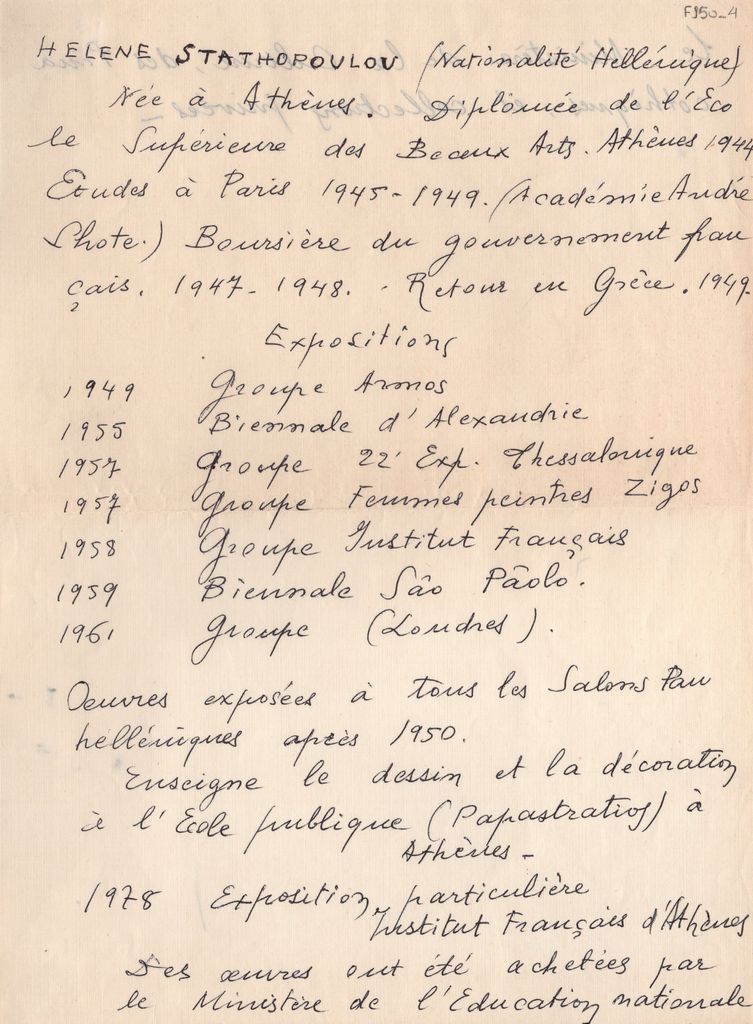 F950-4
HELENE STATHOPOULOU (Nationalité Hellénique)
Née à Athènes. Diplômée de l'Eco
le Supérieure des Beaux Arts. Athènes 1944
Etudes à Paris 1945-1949. (Académie André
Lhote.) Boursière du gouvernement fran
çais. 1947-1948. - Retour en Grèce. 1949.
Expositions
1949 Groupe Armos
1955 Biennale d'Alexandrie
1957 Groupe 22' Exp. Thessalonique
1957 Groupe Femmes peintres Zigos
1958 Groupe Institut Français
1959 Biennale São Pãolo.
1961 Groupe (Londres).
Oeuvres exposées à tous les Salons Pan
helléniques après 1950.
Enseigne le dessin et la décoration
à l'Ecole publique (Papastratios) à
Athènes -
1978 Exposition particulière
Institut Français d'Athènes
Des œuvres ont été achetées par
le Ministère de l'Education nationale